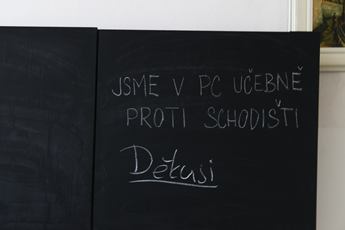 JSME V PC UČEBNĚ
PROTI SCHODIŠTI
Dětusi